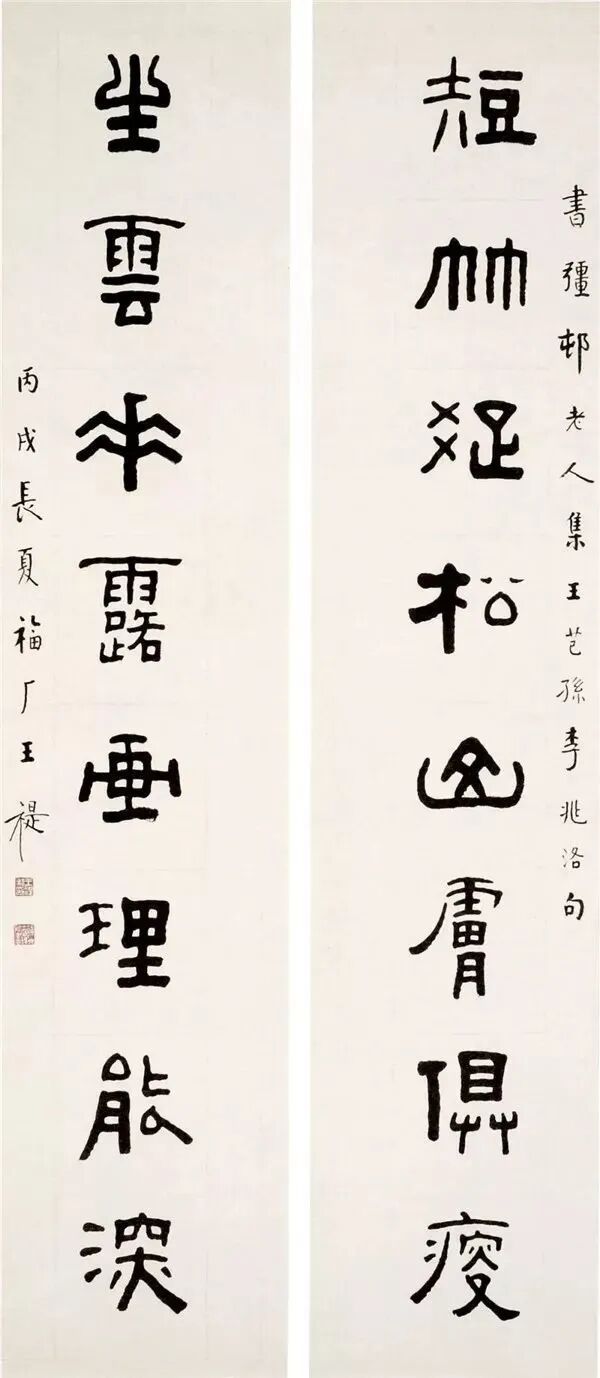 書彊邨老人集王芑孫李兆洛句
短竹疏松山膚俱瘦
雲垂露畫理能深
丙戌長夏福厂王禔